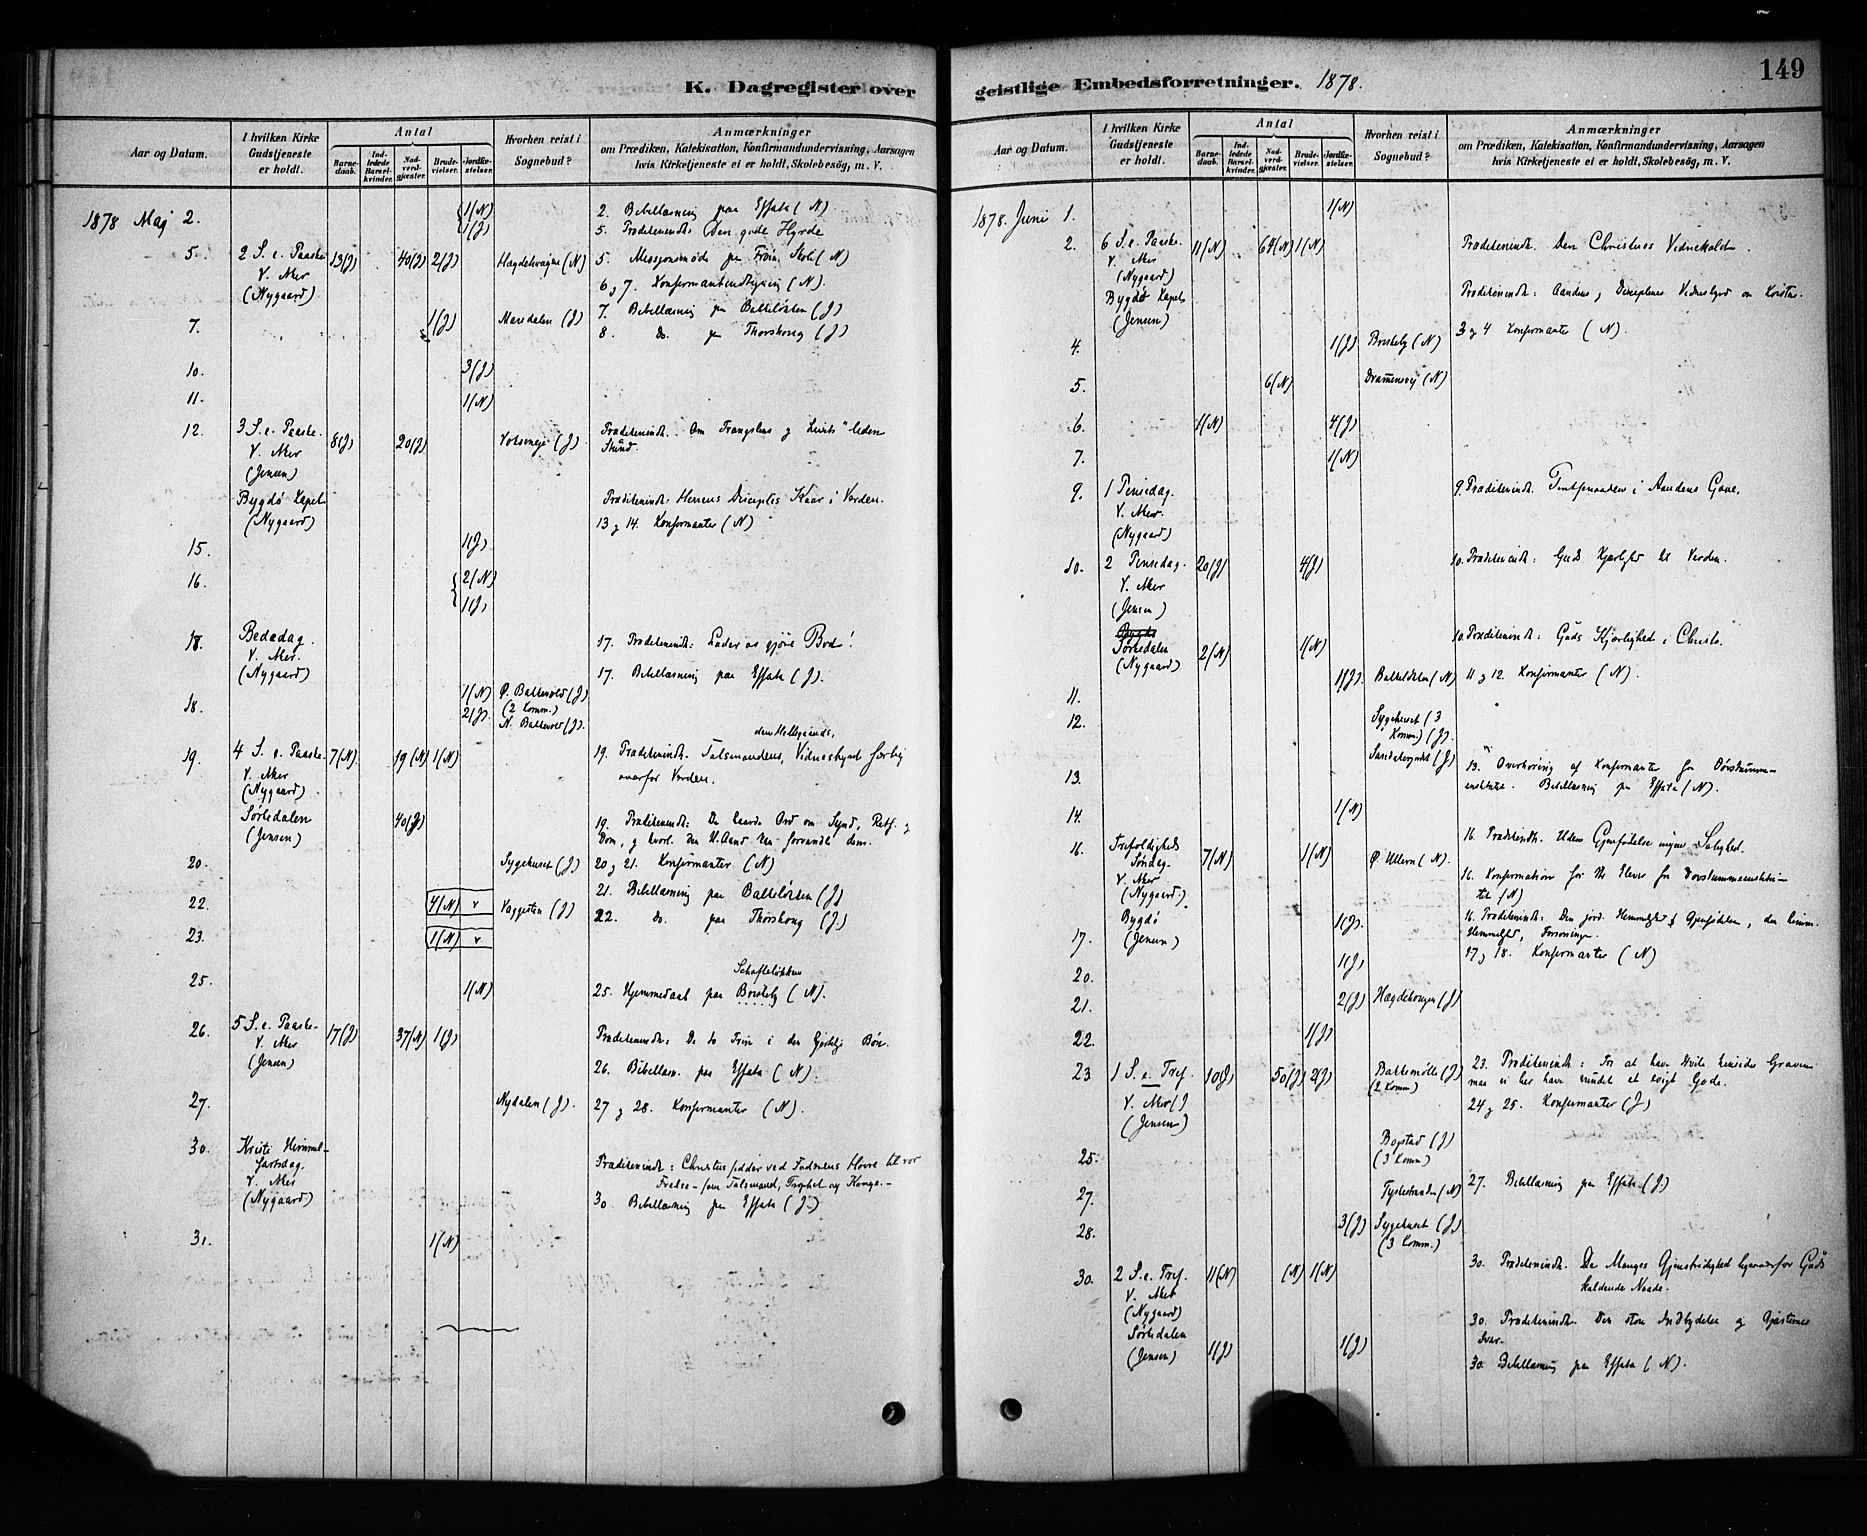 K. Dagregister over
Aar og Datum.
I hvilken Kirke Gudstjeneste er holdt.
Antal
Barnedaab.
Indledede Barselkvinder.
Nadverdgjæster.
Brudevielser.
Jordfæstelser.
Hvorhen reist i Sognebud?
Anmærkninger
om Prædiken, Katekisation, Konfirmandundervisning, Aarsagen
hvis Kirketjeneste ei er holdt, Skolebesøg, m. V.
1878 Maj 2. 1(N) 2. Bibellæsning paa Effata (N).
1(J) 5. Prædikenindh: Den gode Hyrde
5. 2 S. e. Paaske 13(J) 40(J) 2(J) (N) 5. paa (N)
V. Aker
(Nygaard) 6 og 7. (N).
7. 1(J) Maridalen (J) 7. Bibellæsning paa Balkeløkken (J)
8. Do. paa Thorshoug (J)
10. 3(J)
11. 1(N)
12. 3 S. e. Paaske. 8(J) 20(J) Vokseneje (J) Prædikenindh. Om og "liden
V. Aker Stund.
(Jensen)
Bygdø Kapel Prædikenindh: Herrens Disciples Kaar i Verden.
(Nygaard) 13 og 14. Konfirmanter (N)
15. 1(J)
16. 2(N)
1(J)
18. Bededag. 17. Prædikenindh: Lader os gjøre Bod!
V. Aker.
(Nygaard) 17. Bibellæsning paa Effata (J).
18. 1(N) (J)
2(J). (2 Komm.)
(J).
den Helligaands,
19. 4 S. e. Paaske 7(N) 19(N) 1(N) 19. Prædikenindh. Talsmandens, Vidnesbyrd
V. Aker overfor Verden.
(Nygaard)
Sørkedalen 40(J) 19. Prædikenindh: De haarde Ord om Synd, Retf. og
(Jensen) Dom, og hvorl. den H. Aand forvandle dem.
20. Sygehuset (J) 20 og 21. Konfirmanter (N)
21. Bibellæsning paa Balkeløkken (J)
22. 4(N) v (J) 22. do. paa Thorshoug (J.)
23. 1(N) v
Schafteløkken
25. 1(N) 25. Hjemmedaab paa (N).
26. 5 S. e. Paaske. 17(J) 37(N) 1(J) Prædikenindh: De to Trin i den Bøn.
V. Aker
(Jensen) 26. Bibellæsn. paa Effata (N).
27. Nydalen (J). 27 og 28. Konfirmanter (N).
30. Kristi Himmel-
fartsdag. Prædikenindh: Christus sidder ved Faderens Høire til vor
V. Aker Frelse - som Talsmand, Prophet og Konge.-
(Nygaard) 30 Bibellæsning paa Effata (J.)
31. 1(N)
geistlige Embedsforretninger. 1878.
149
Aar og Datum.
I hvilken Kirke Gudstjeneste er holdt.
Antal
Barnedaab.
Indledede Barselkvinder.
Nadverdgjæster.
Brudevielser.
Jordfæstelser.
Hvorhen reist i Sognebud?
Anmærkninger
om Prædiken, Katekisation, Konfirmandundervisning, Aarsagen
hvis Kirketjeneste ei er holdt, Skolebesøg, m. V.
1878. Juni 1. 1(N)
2. 6 S. e. Paaske. 11(N) 64(N) 1(N) Prædikenindh. Den Christnes
V. Aker
(Nygaard)
Bygdø Kapel Prædikenindh: Aandens og Disciplenes Vidnesbyrd om Kristus.
(Jensen)
4. 1(J) (N) 3 og 4 Konfirmanter (N).
5. 6(N) Drammensvej (N)
6. 1(N) 4(J)
7. 1(N)
9. 1 Pinsedag. 9. Prædikenindh. i Aandens Gave.
V. Aker.
(Nygaard)
10. 2 Pinsedag. 20(J) 4(J) 10. Prædikenindh: Guds Kjærlighed til Verden.
V. Aker
(Jensen)
Bygdø
Sørkedalen 2(N) 1(N) 10. Prædikenindh: Guds Kjærlighed i Christo.
(Nygaard)
11. 1(J). (N) 11 og 12. Konfirmanter (N).
12. Sygehuset (3
Komm.) (J).
13. (J) 13. Overhøring af Konfirmanter fra Døvstumme-
institutet. Bibellæsning paa Effata (N).
14. 1(N)
16. Trefoldigheds 7(N) 1(N) Ø. Ullern (N). 16 Prædikenindh. Uden Gjenfødelse ingen Salighed.
Søndag.
V. Aker 16. Konfirmation for Elever fra Døvstummeinstitu-
(Nygaard.) tet (N)
Bygdø 1(J). 16. Prædikenindh: Den jord. Hemmelighed Gjenfødelsen, den himm.
17. (Jensen) Hemmelighed, Forsoningen.
1(J) 17 og 18. Konfirmanter (N)
20.
21. 2(J) Hægdehougen (J)
22. 1(J)
23. 1 S. e. Tref. 10(J) 50(J) 2(J) Bakkemølle (J) 23. Prædikenindh: For at have Hvile hinsides Graven
(2 Komm) maa vi her have vundet et evigt Gode.
V. Aker (J 24 og 25. Konfirmanter (J)
(Jensen)
25. Bogstad (J)
(3 Komm)
27. (N) 27. Bibellæsning paa Effata (J)
28. 3(J) Sygehuset (J.)
(3 Komm.)
30. 2 S. e. Tref. 11(N) (N) 1(N) 30. Prædikenindh. De Manges Gjenstridighed ligeoverfor Guds
V. Aker kaldende Naade.
(Nygaard)
Sørkedalen 1(J) 1(J) 30. Prædikenindh. Den store Indbydelse og Gjæsternes
(Jensen) Svar.
30. Bibellæsning paa Effata (N).